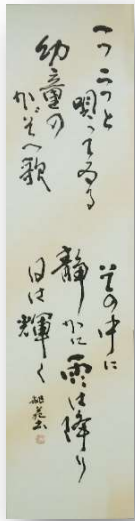 一つ二つと
唄ってゐる
幼童の
かぞへ歌
その中に
静かに雨は降り
日は輝く